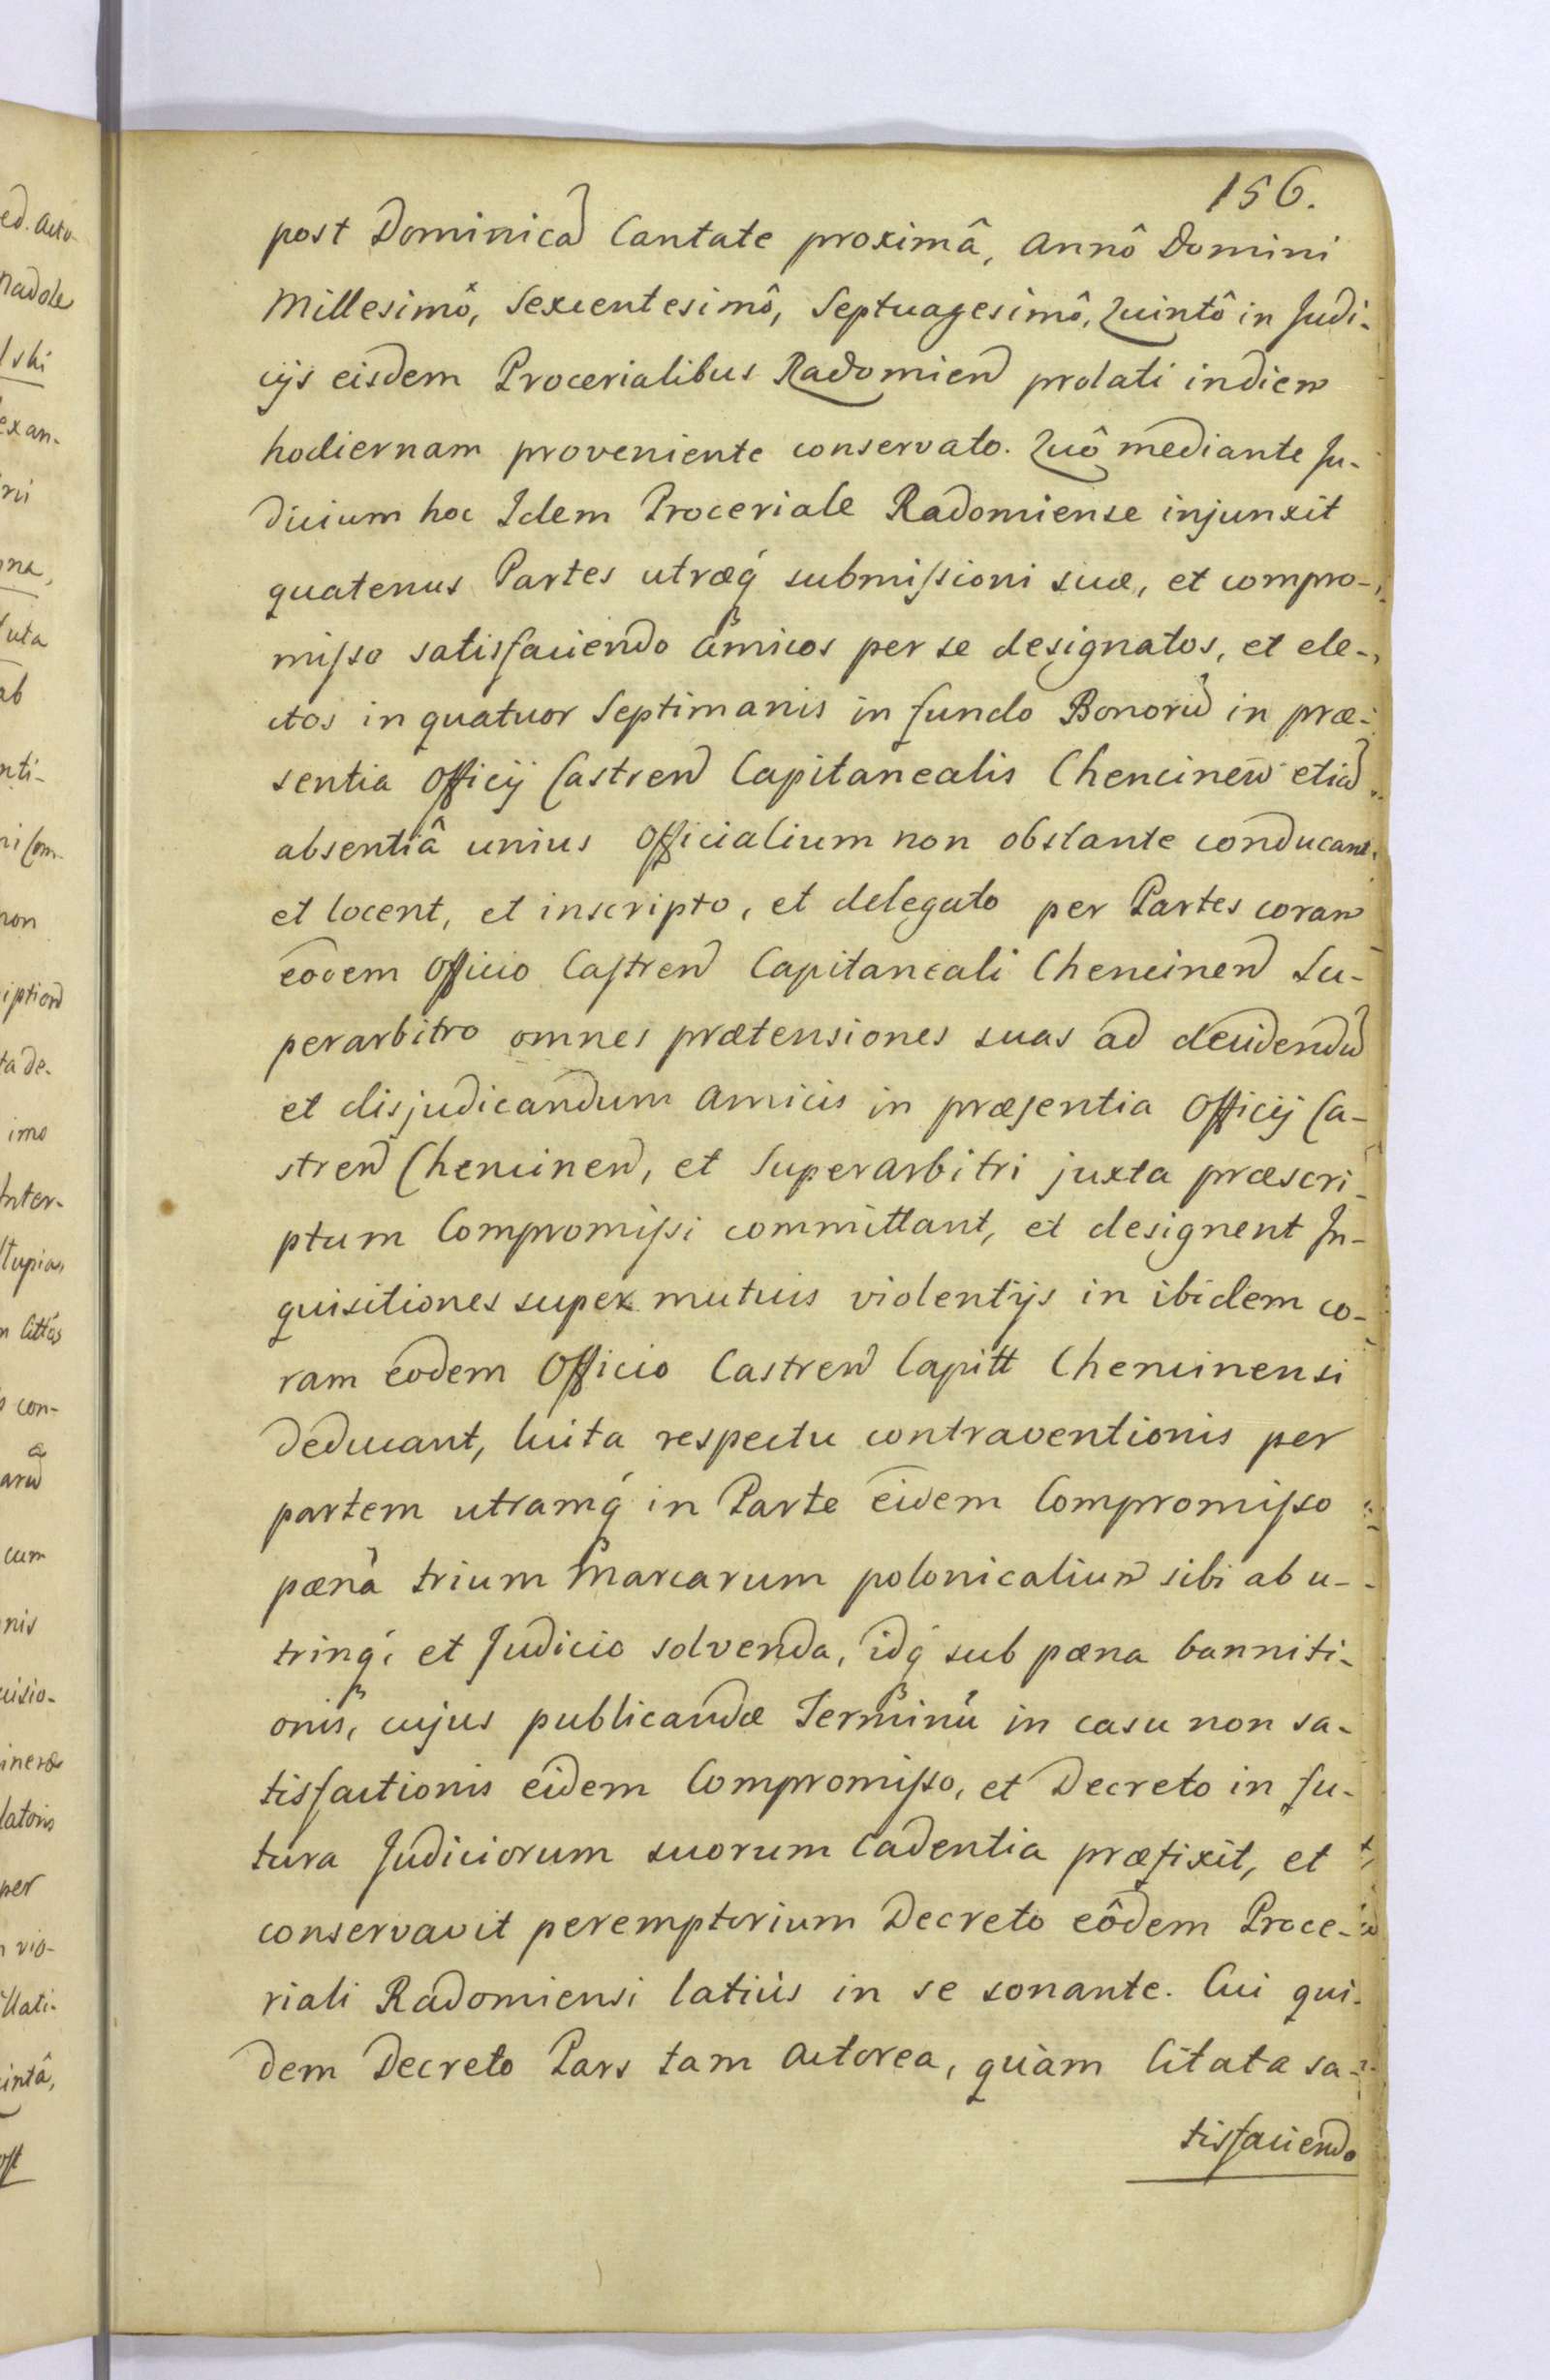 156.
post Dominicam Cantate proximâ, Annô Domini
Millesimô, Sexcentesimô, Septuagesimô, Quintô in Judi-
cijs eisdem Procerialibus Radomien prolati indiem
hodiernam proveniente conservato. Quô mediante Ju-
dicium hoc Idem Proceriale Radomiense injunxit
quatenus Partes utræq́ submissioni suæ, et compro-
misso satisfaciendo Amicos per se designatos, et ele-
ctos in quatuor Septimanis in fundo Bonorum in præ-
sentia Officij Castren Capitanealis Chencinen etiam
absentiâ unius Officialium non obstante conducant
et locent, et inscripto, et delegato per Partes coram
eodem Officio Castren Capitaneali Chencinen Su-
perarbitro omnes prætensiones suas ad decidendum
et disjudicandum Amicis in præsentia Officij Ca-
stren Chencinen, et Superarbitri juxta præscri-
ptum Compromissi committant, et designent In-
quisitiones super mutuis violentijs in ibidem co-
ram eodem Officio Castren Capitt Chencinensi
deducant, luita respectu contraventionis per
partem utramq́ in Parte eidem Compromisso
pænâ trium Marcarum polonicalium sibi ab u-
trinq́, et Judicio solvenda, idq́ sub pæna banniti-
onis, cujus publicandæ Terminũ in casu non sa-
tisfactionis eidem Compromisso, et Decreto in fu-
tura Judiciorum suorum Cadentia præfixit, et
conservavit peremptorium Decreto eôdem Proce-
riali Radomiensi latiùs in se sonante. Cui qui-
dem Decreto Pars tam Actorea, quàm Citata sa-
tisfaciendo